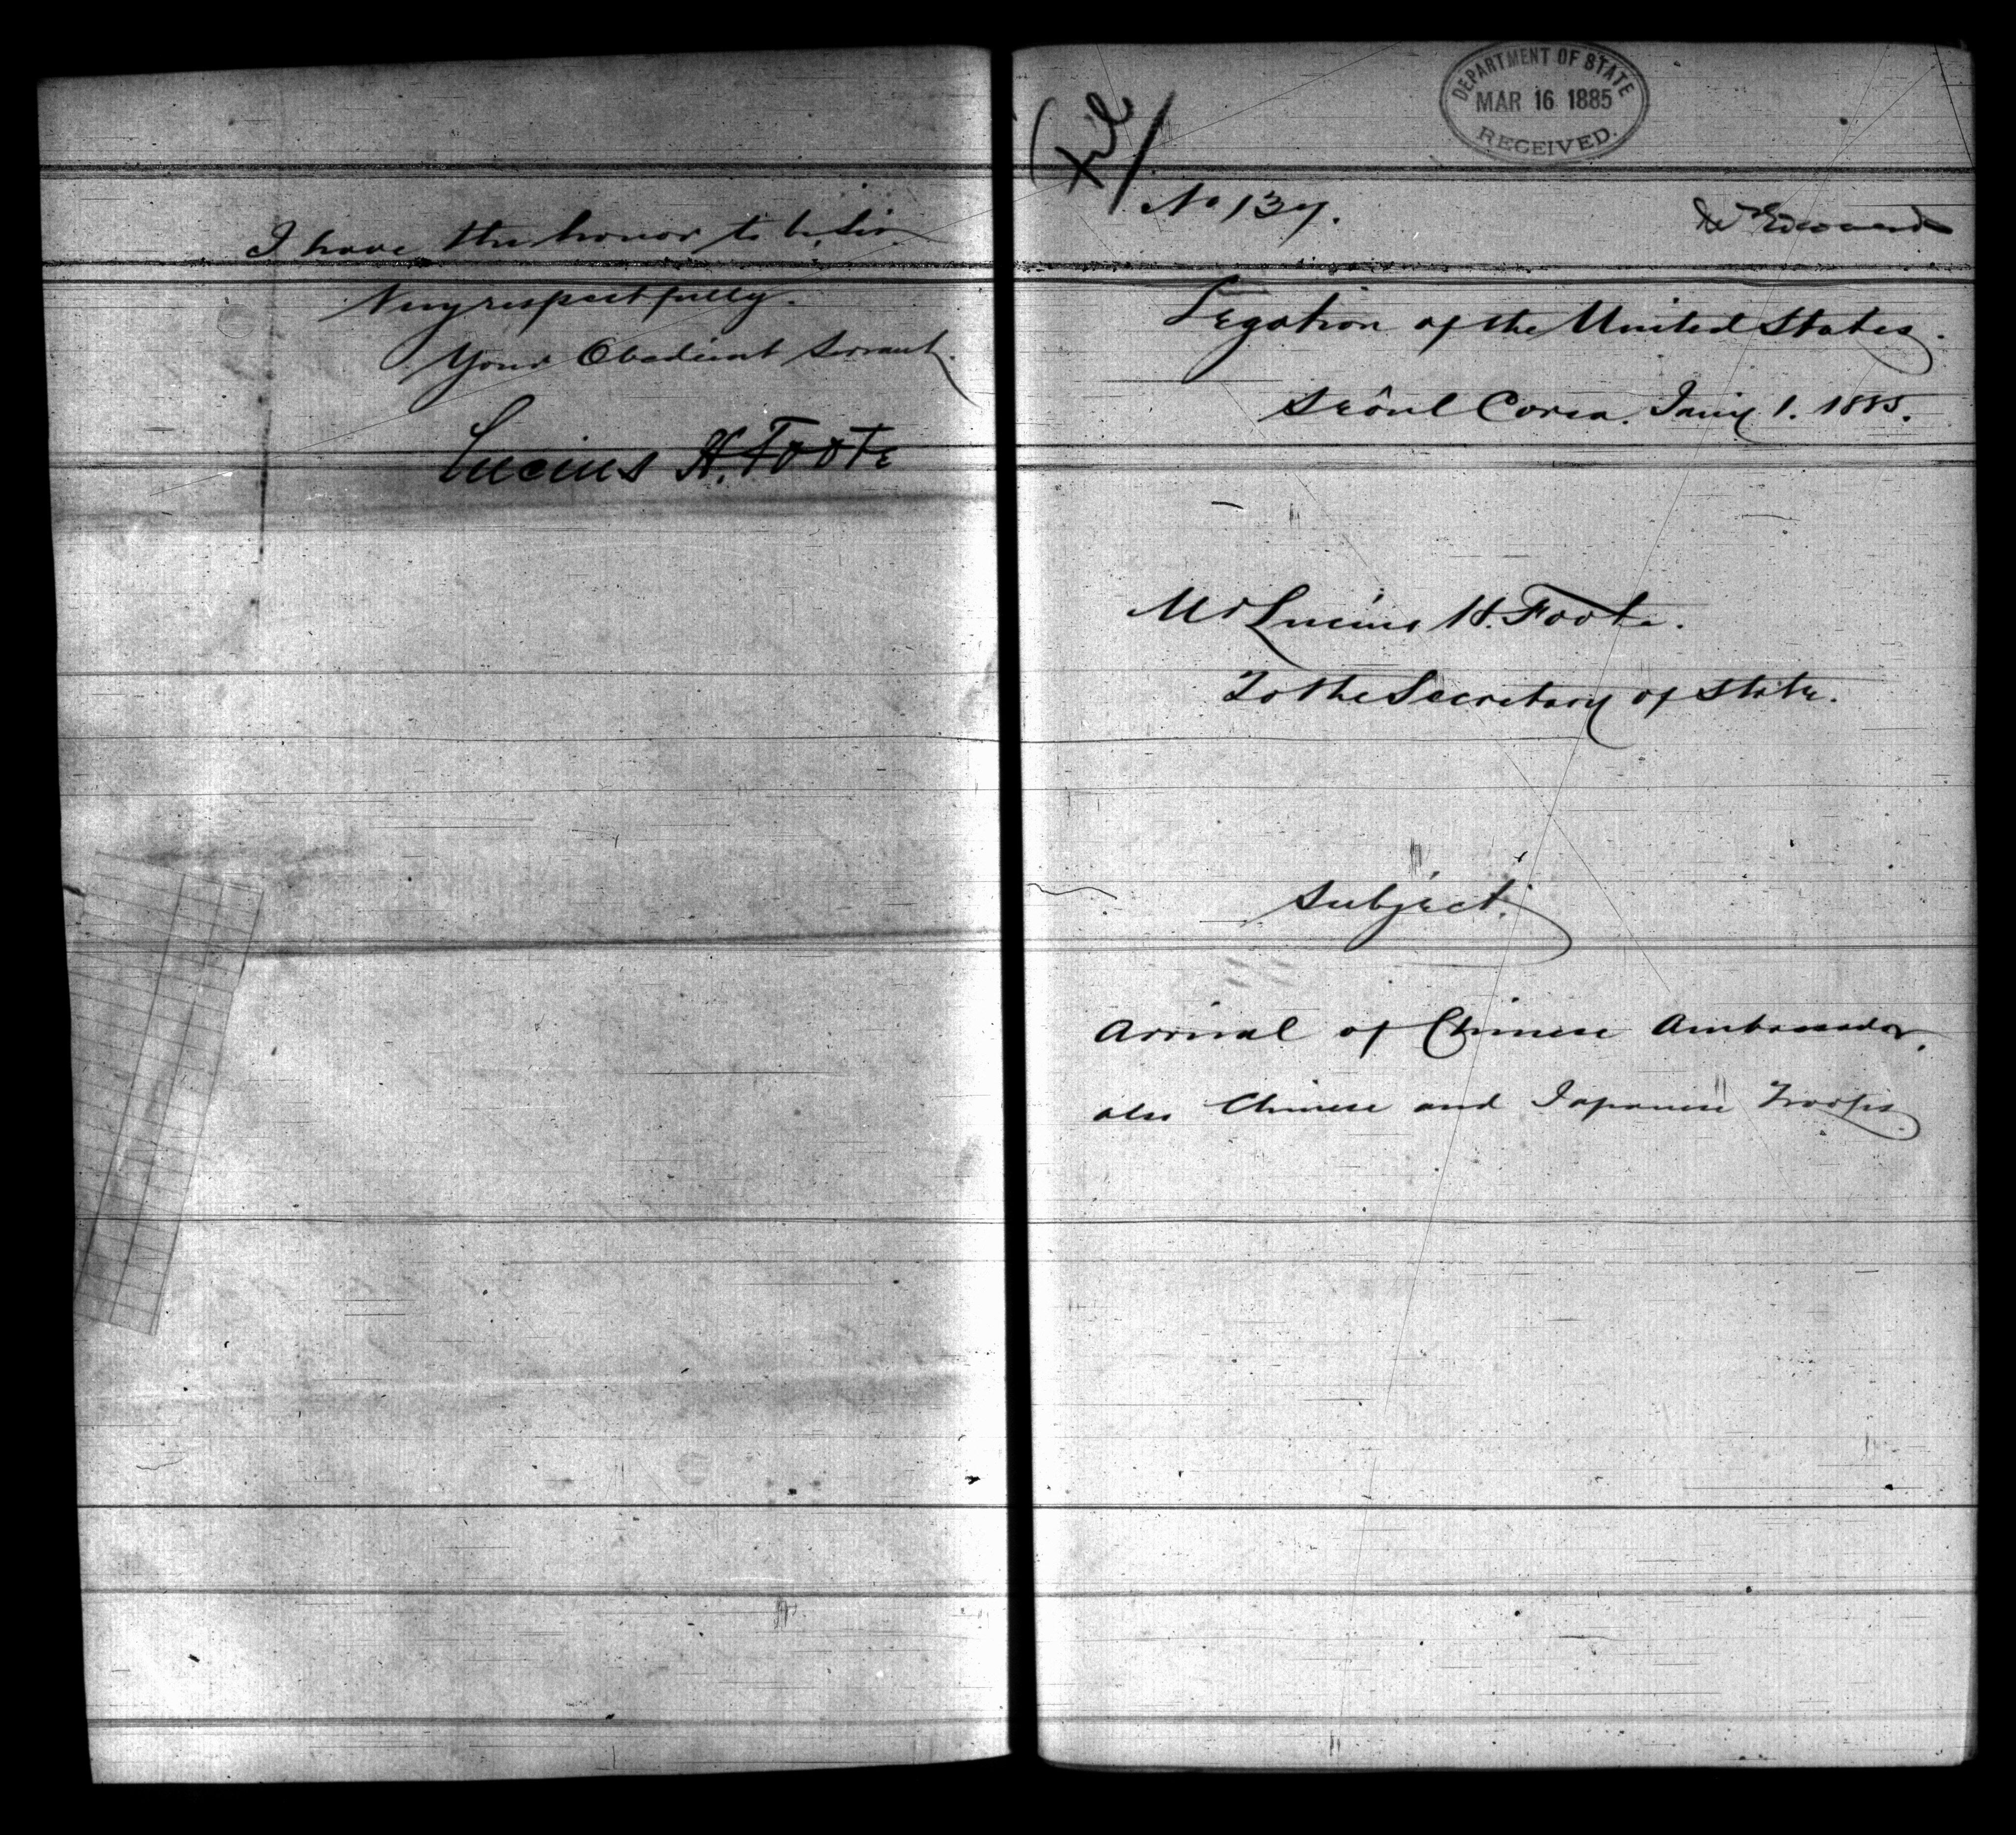 I have the honor to be, Sir
Very respectfully.
Your Obedient Servant.
Lucius H. Foote
DEPARTMENT OF STATE
MAR 16 1885
RECEIVED.
File
No 137.
Legation of the United States.
Seôul Corea. Jany 1. 1885.
Mr Lucius H. Foote.
To the Secretary of State.
Subject.
Arrival of Chinese Ambassador,
also Chinese and Japanese Troops